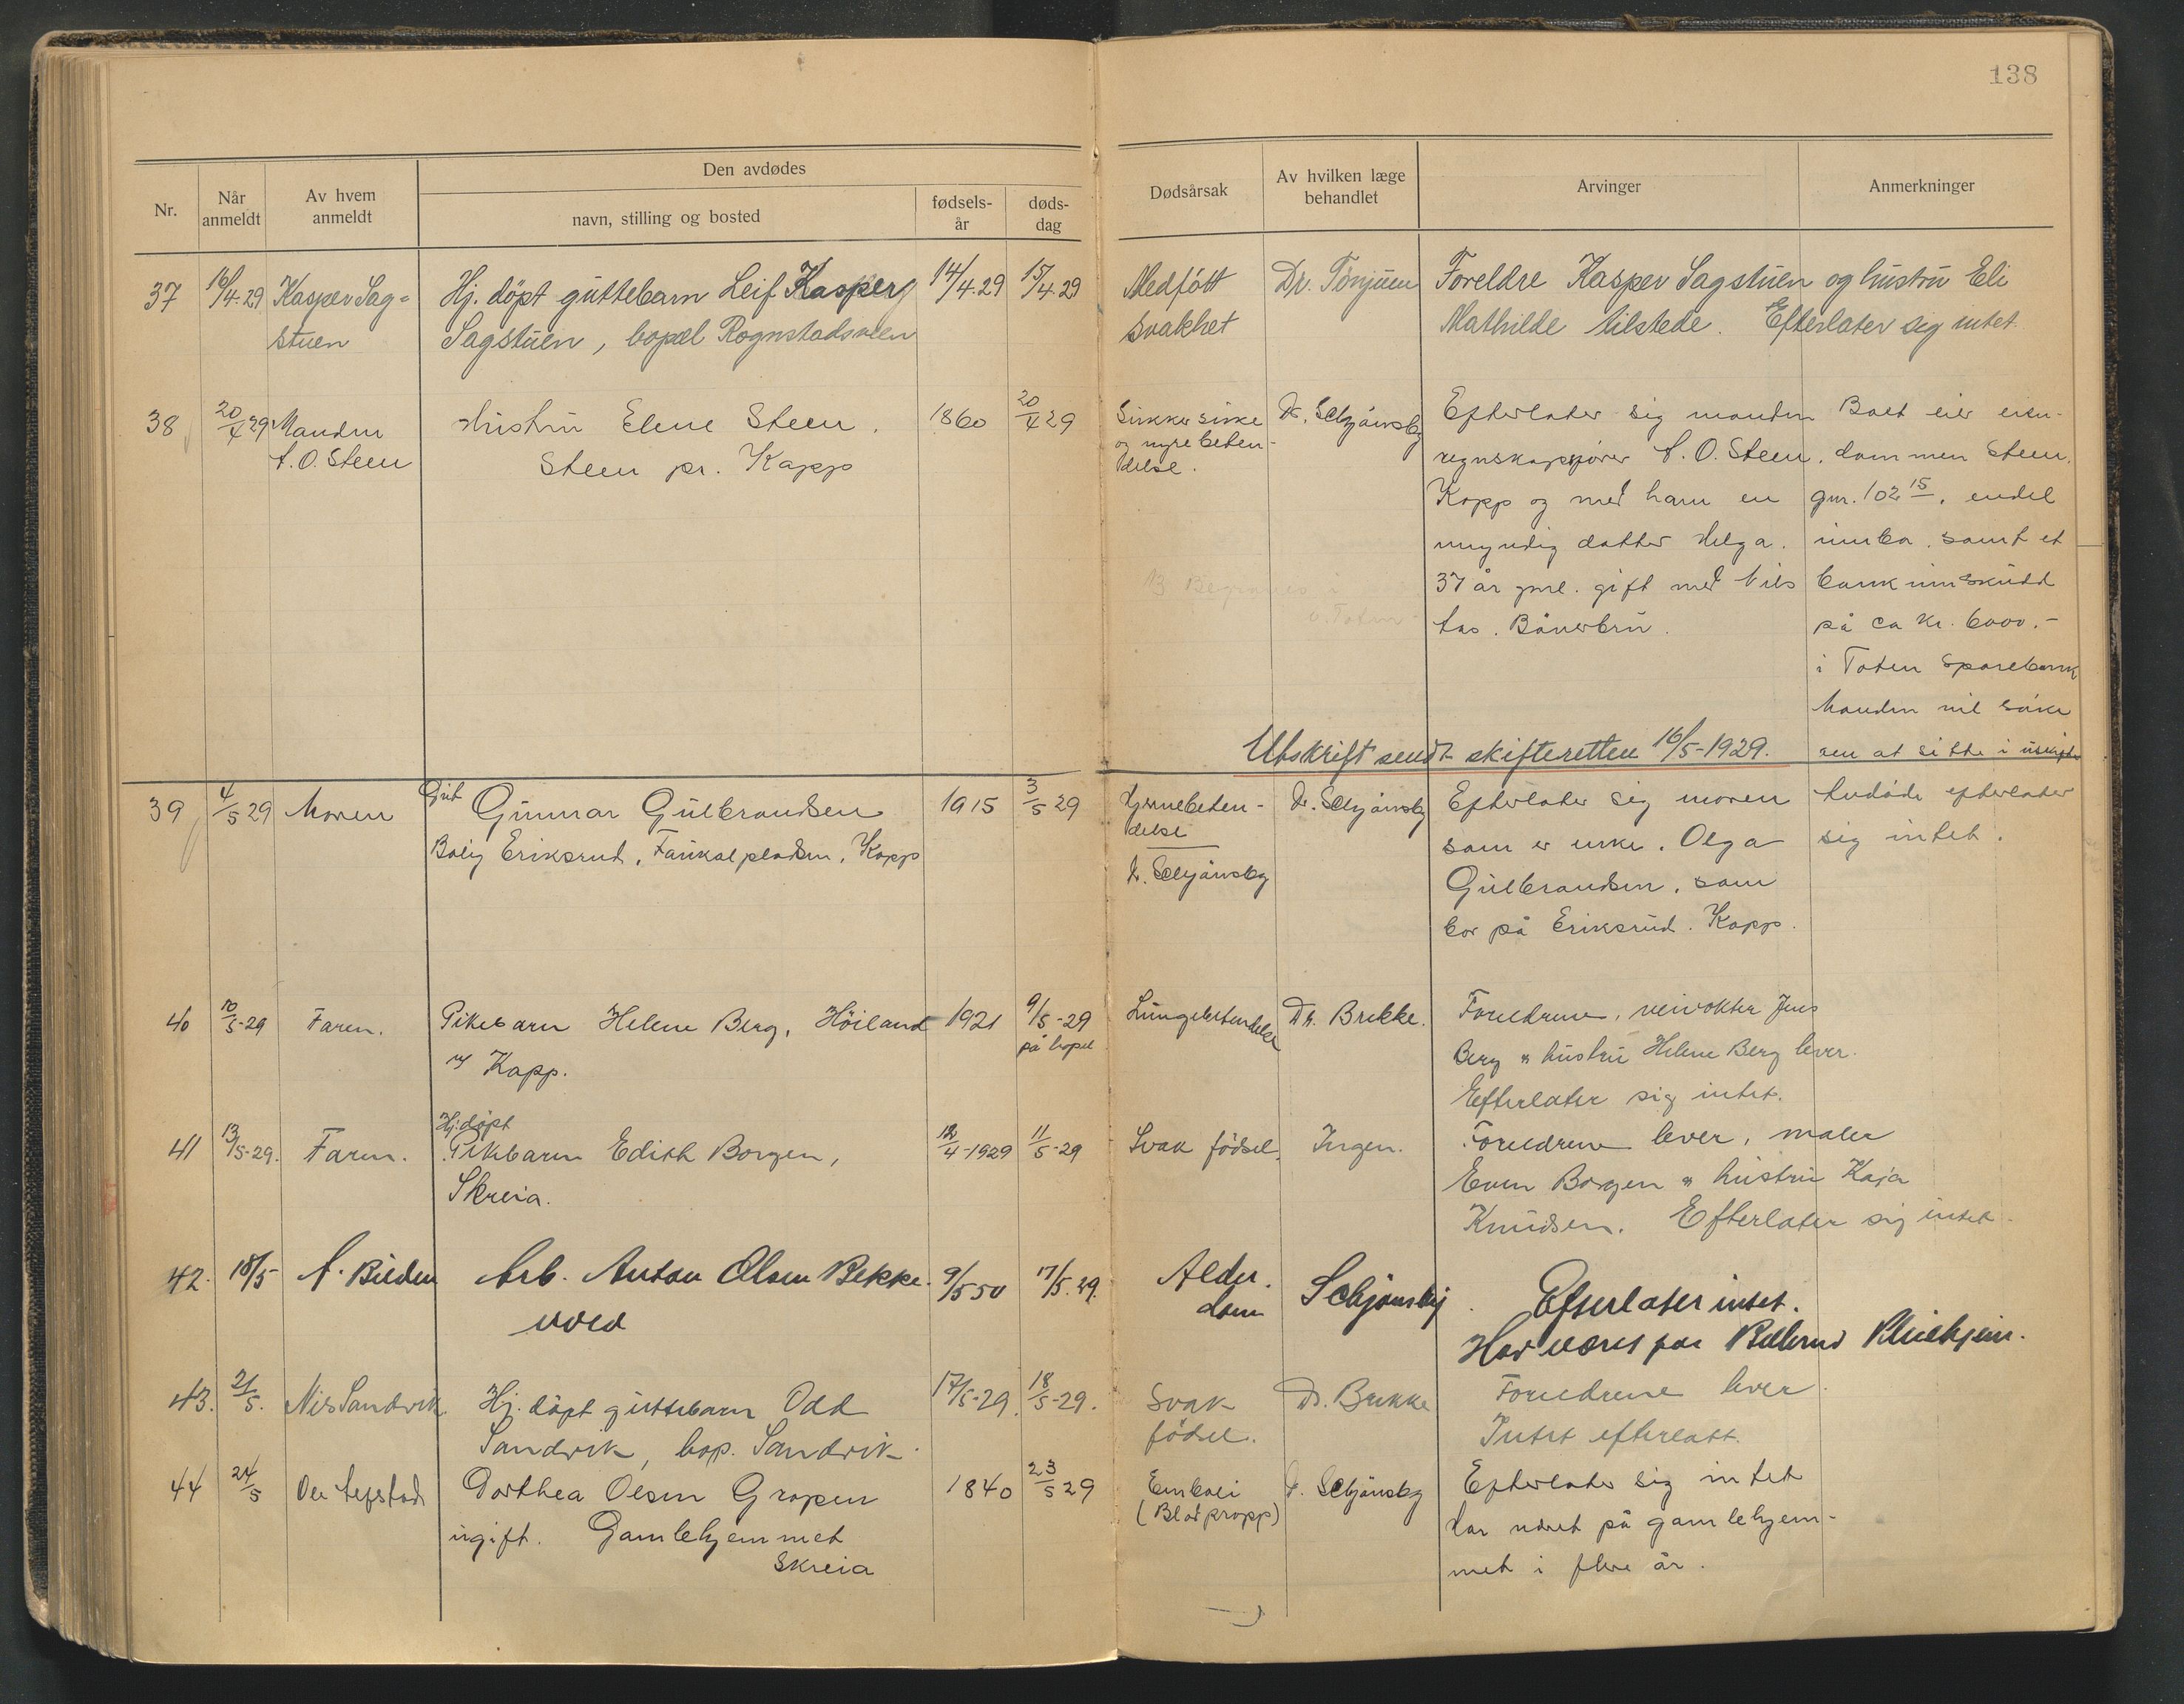 138
Den avdødes
Nr.
Når anmeldt
Av hvem anmeldt
navn, stilling og bosted
fødsels-år
døds-dag
Dødsårsak
Av hvilken læge behandlet
Arvinger
Anmerkninger
37 16/4-29 Kasper Sag= Hj. döpt guttebarn Leif Kasper 14/4-29 15/4-29 Medfött Dr. Tönjum Foreldre Kasper Sagstuen og hustru Eli
stuen Sagstuen, bopæl Rognstadsveen svakhet Mathilde tilstede. Efterlater sig intet.
38 20/4 29 Manden Hustru Elene Steen. 1860 20/4 29 Sukkersyke Dr. Schjånsby Efterlater sig manden Boet eier eien-
A. O. Steen Steen pr. Kapp og nyrebeten- regnskapsfører A. O. Steen, dommen Steen.
delse. Kapp og med ham en gnr. 102 15, endel
myndig datter Helga. innbo. samt et
37 år gml. gift med Nils bankinnskudd
Begraves i
Ø. Toten
på ca Kr. 6000.-
i Toten Sparebank
Manden vil søke
Utskrift sendt skifteretten 16/5-1929. om at sitte i uskifte
39 4/5 29 Moren Gut Gunnar Gulbrandsen 1915 3/5 29 Hjernebeten- Dr. Schjånsby Efterlater sig moren Avdøde efterlater
Bolig Eriksrud, Faukalpladsen, Kapp delse som er enke. Olga sig intet.
Dr. Schjånsby Gulbrandsen, som
bor på Eriksrud. Kapp.
40 10/5-29 Faren. Pikebarn Helene Berg, Höiland 1921 9/5-29 Lungebetendelse Dr. Brekke. Foreldrene, veivokter Jens
pr Kapp. på bopel Berg og hustru Helene Berg lever.
Efterlater sig intet.
41 13/5-29. Faren. Hj. döpt Pikebarn Edith Borgen, 12/4-1929 11/5-29 Svak födsel. Ingen. Foreldrene lever, maler
Skreia. Even Borgen og hustru Kaja
Knudsen. Efterlater sig intet.
42. 18/5 A. Bilden Arb. Anton Olsen Bekke- 9/5 50 17/5.29. Alder- Schjønsby Efterlater intet.
dom Har været paa Pleiehjem.
43. 21/5. Nils Sandvik Hj. döpt guttebarn Odd 17/5-29. 18/5-29. Svak Dr. Brekke Foreldrene lever.
Sandvik, bop. Sandvik. födsel. Intet efterlatt.
44 24/5 Ole Dorthea Olsen Gropen 1840 23/5 29 Emboli Dr. Schjånsby Efterlater sig intet
ugift. Gamlehjemmet (Blodpropp) Har været på gamlehjem-
Skreia met i flere år.